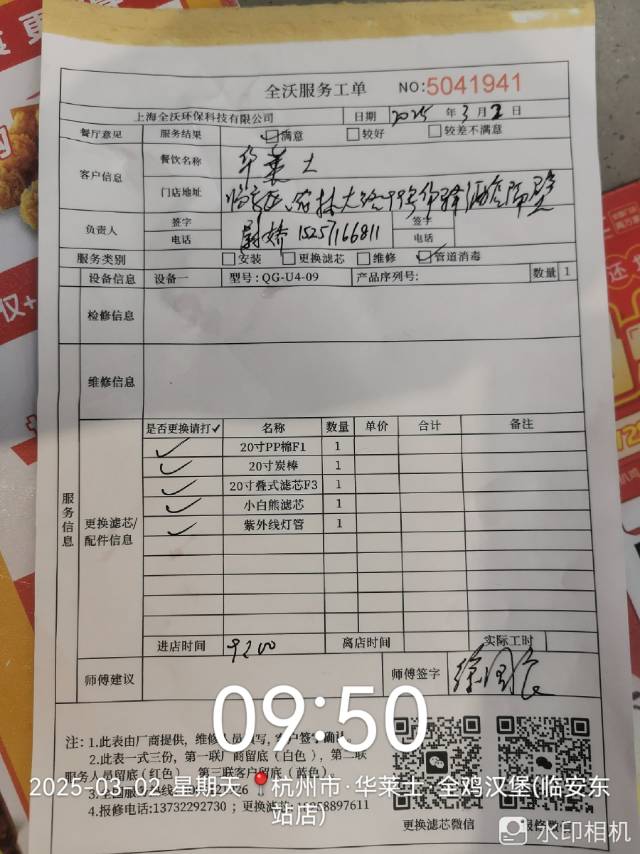 全沃服务工单 NO:5041941
上海全沃环保科技有限公司 日期 2025 年 3 月 2 日
餐厅意见 服务结果 ☑满意 □较好 □较差不满意
客户信息 餐饮名称 华莱士
门店地址
负责人 签字 签字
电话 15257166811 电话
服务类别 □安装 □更换滤芯 □维修 ☑管道消毒
设备信息 设备一 型号:QG-U4-09 产品序列号: 数量 1
检修信息
维修信息
服务信息
更换滤芯/配件信息
是否更换请打✓ 名称 数量 单价 合计 备注
✓ 20寸PP棉F1 1
✓ 20寸炭棒 1
✓ 20寸叠式滤芯F3 1
✓ 小白熊滤芯 1
✓ 紫外线灯管 1
进店时间 9:00 离店时间 实际工时
师傅建议 师傅签字
09:50
注: 1.此表由厂商提供，维修人员填写，客户签字确认。
2.此表一式三份，第一联厂商留底(白色)，第二联
服务人员留底(红色) 第三联客户留底(蓝色)。
4.报修电话:13732292730 ; 更换滤芯
更换滤芯微信
2025-03-02 星期天 杭州市·华莱士·全鸡汉堡(临安东站店)
水印相机